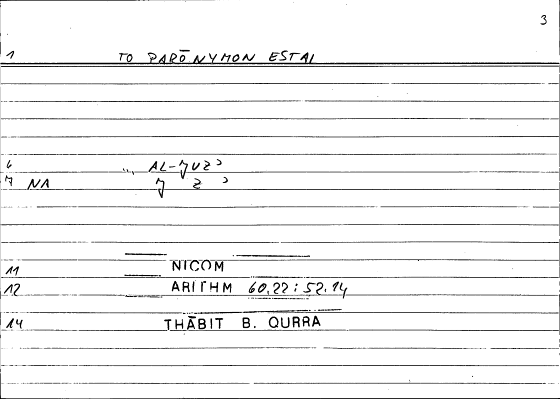 3
1 TO PARŌNYMON ESTAI
6 „ AL-JUZʾ
7 NA J Z ʾ
11 NICOM
12 ARITHM 60.22 : 52.14
14 THĀBIT B. QURRA